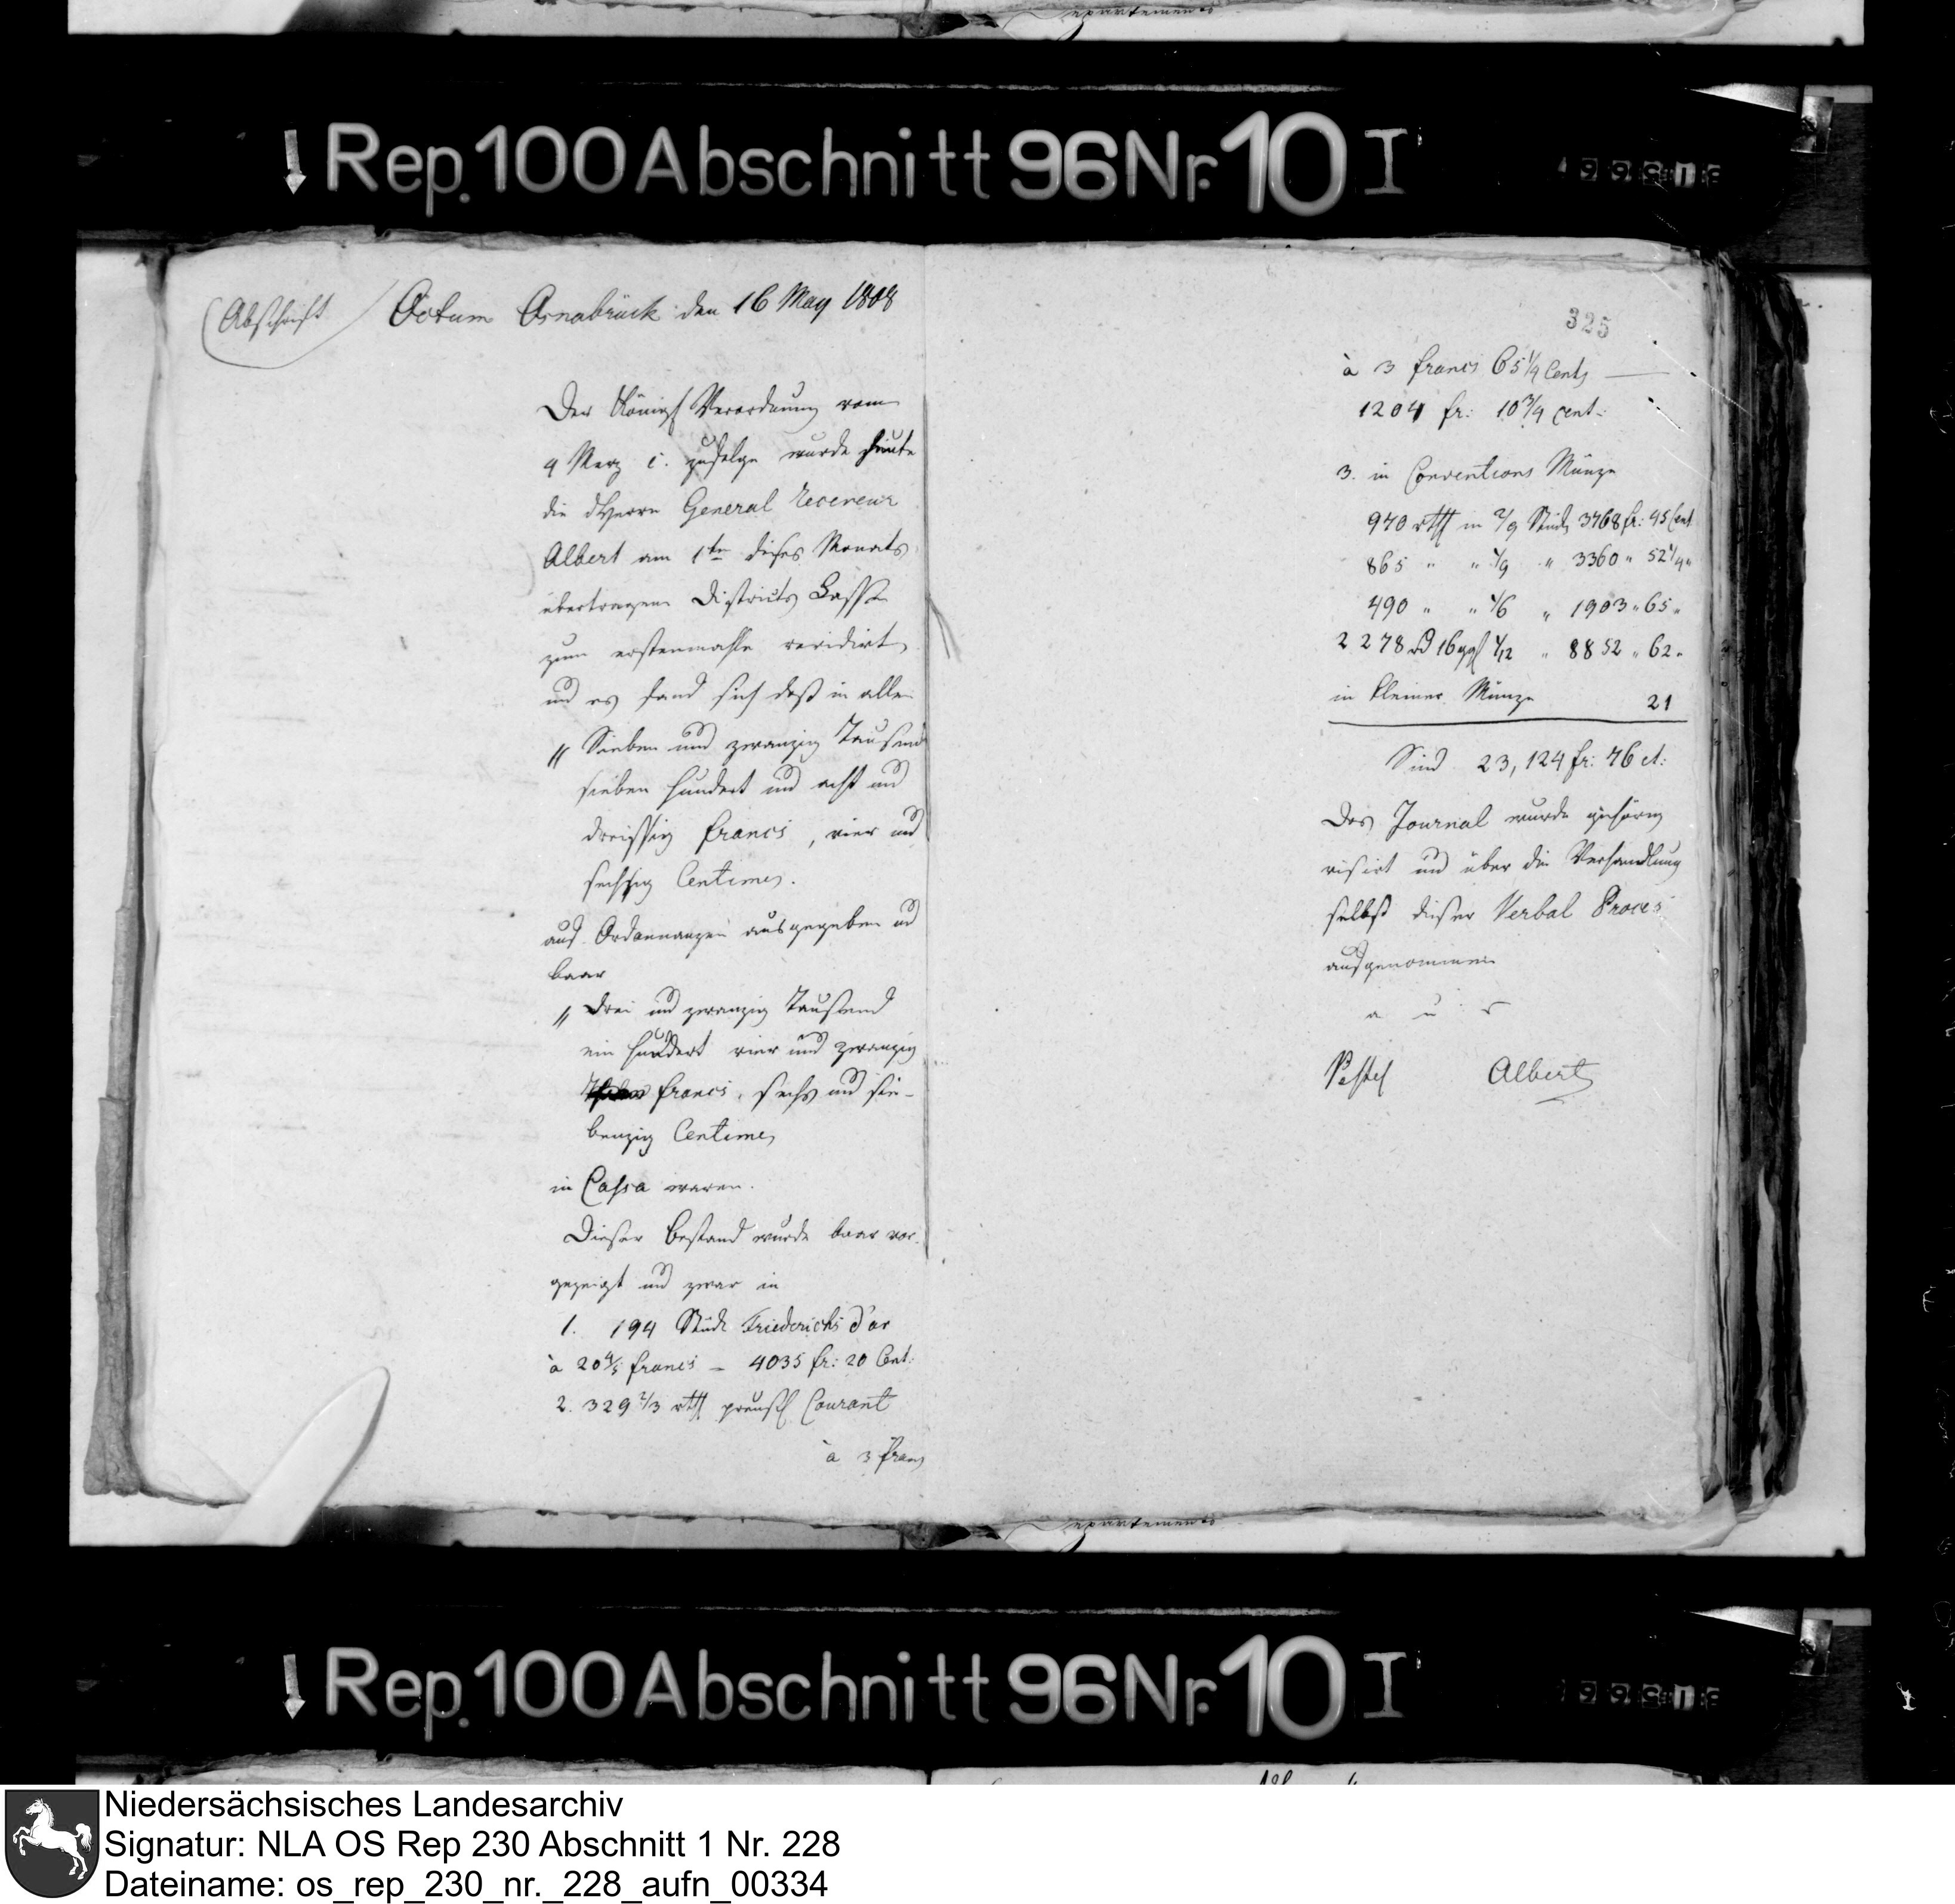 epartements
Rep. 100 Abschnitt 96 Nr. 10 I
Abschrift
Actum Osnabrück den 16 May 1808
Der Königl Verordnung vom
9 Merz c. zufolge wurde heute
die dHerrn General Receveur
Albert am 1ten dieses Monats
übertragene Districts Casse
zum erstenmahle revidirt,
und es fand sich daß in allen
" Sieben und zwanzig Tausend
sieben hundert und acht und
dreissig francs, vier und
sechszig Centimes.
auf Ordonnanzen ausgegeben und
baar
" drei und zwanzig Tausend
ein hundert vier und zwanzig
francs, sechs und sie-
benzig Centimes
in Cassa waren.
Dieser Bestand wurde baar vor-
gezeigt und zwar in
1. 194 Stück Friederichs d'or
à 20 4/5 francs = 4035 fr: 20 Cent:
2. 329 2/3 rthl preußl Courant
à 3 francs
325
à 3 francs 65 1/4 Cents
1204 fr: 10 3/4 cent:
3. in Conventions Münze
970 rthl in 2/3 Stück 3768 fr: 45 Cent
865 " " 1/3 " 3360 " 52 1/4 "
490 " " 1/6 " 1903 " 65 "
2278 rthl 16 ggl 1/12 " 8852 " 62 "
in kleiner Münze 21
Sind 23,124 fr: 76 ct:
Das Journal wurde gehörig
visirt und über die Verhandlung
selbst dieser Verbal Proces
aufgenommen
a u s
Pestel Albert
epartements
Rep. 100 Abschnitt 96 Nr. 10 I
Niedersächsisches Landesarchiv
Signatur: NLA OS Rep 230 Abschnitt 1 Nr. 228
Dateiname: os_rep_230_nr._228_aufn_00334